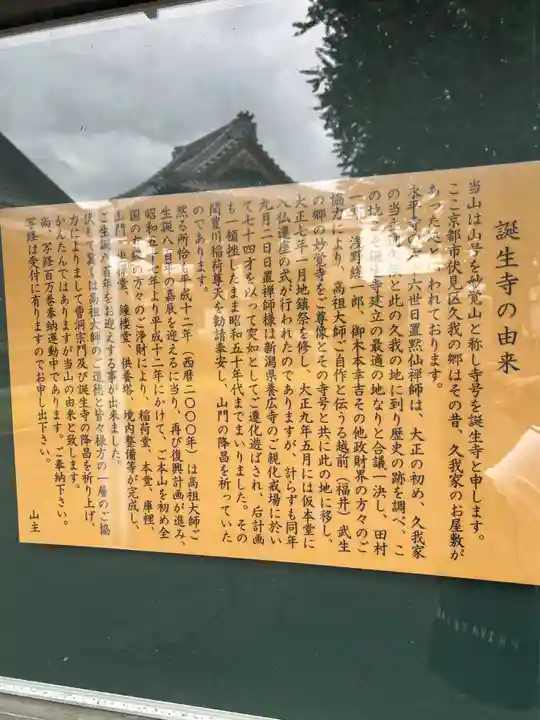 誕生寺の由来
当山は山号を妙覚山と称し寺号を誕生寺と申します。
ここ京都市伏見区久我の郷はその昔、久我家のお屋敷が
あった
われております。
永平寺
六世日置黙仙禅師は、大正の初め、久我家
の当主
と此の久我の地に到り、歴史の跡を調べ、こ
の地こそ誕生寺建立の最適の地なりと合議一決し、田村
一郎、浅野総一郎、御木本幸吉その他政財界の方々のご
協力により、高祖大師ご自作と伝うる越前(福井)武生
の郷の妙覚寺をご尊像とその寺号と共に此の地に移し、
大正七年一月地鎮祭を修し、大正九年五月には仮本堂に
入仏遷座の式が行われたのでありますが、計らずも同年
九月二日日置禅師様は新潟県養広寺のご親化戒場に於い
て七十四才を以って突如としてご遷化遊ばされ、后計画
も一頓挫したまま昭和五十年代までまいりました。その
間豊川稲荷尊天を勧請奉安し、山門の降昌を祈っていた
のであります。
黙る所恰も平成十二年(西暦二〇〇〇年)は高祖大師ご
生誕八百年の嘉辰を迎えるに当り、再び復興計画が進み、
昭和五十七年より平成十二年にかけて、ご本山を初め全
国の
の方々のご浄財により、稲荷堂、本堂、庫裡、
山門、
鐘楼堂、供養塔、境内整備等が完成し、
ご生誕八百年をお迎えする事が出来ました。
伏して冀くは高祖大師のご道徳と皆々様方の一層のご協
力によりまして曹洞宗門及び誕生寺の降昌を祈り上げ、
かんたんではありますが当山の由来と致します。
尚、写経百万巻奉納運動中であります。ご奉納下さい。
写経は受付に有りますのでお申し出下さい。
山主